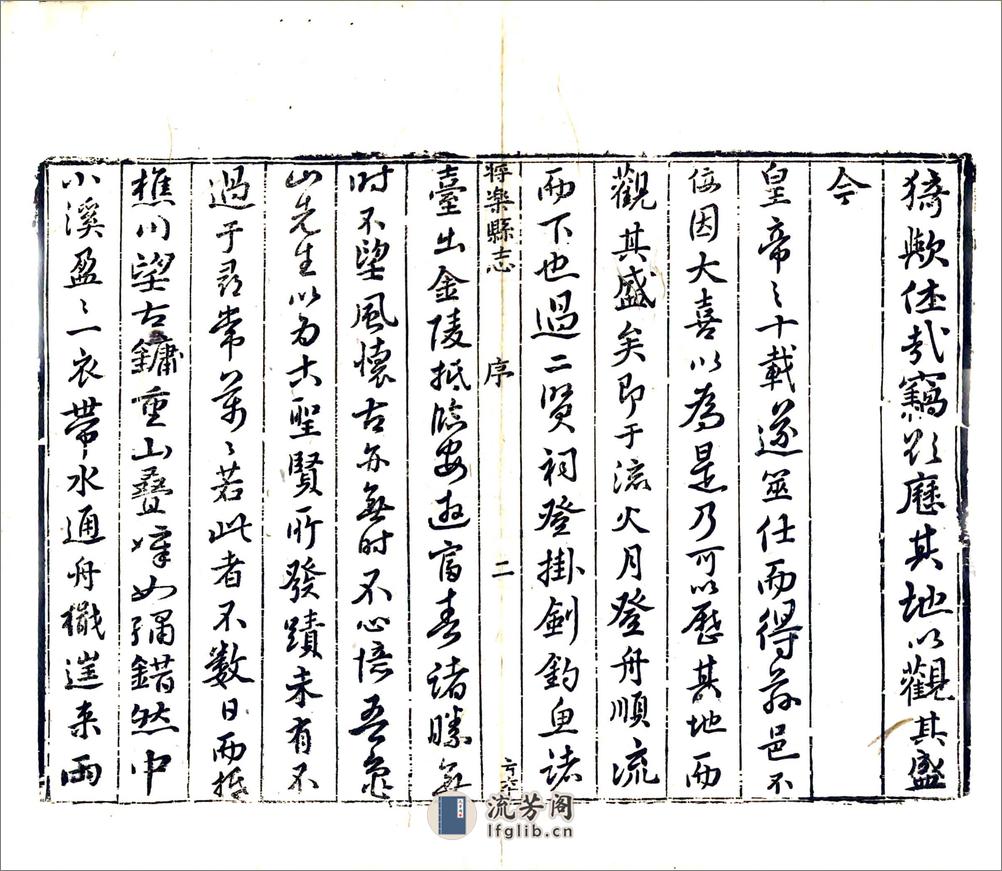 猗歟休哉竊欲歷其地以觀其盛
今
皇帝之十載遂筮仕而得茲邑不
佞因大喜以為是乃可以歷其地而
觀其盛矣即于流火月登舟順流
而下也過二賢祠登掛劍釣魚諸
將樂縣志 序 二
臺出金陵抵臨安遊富春諸勝無
时不望風懷古亦無时不心語吾龜
山先生以为古聖賢所發蹟未有不
過于尋常萬々若此者不数日而抵
樵川望古鏞重山疊嶂如繡錯然中
小溪盈々一衣帶水通舟檝遥来雨
流芳阁
lfglib.cn